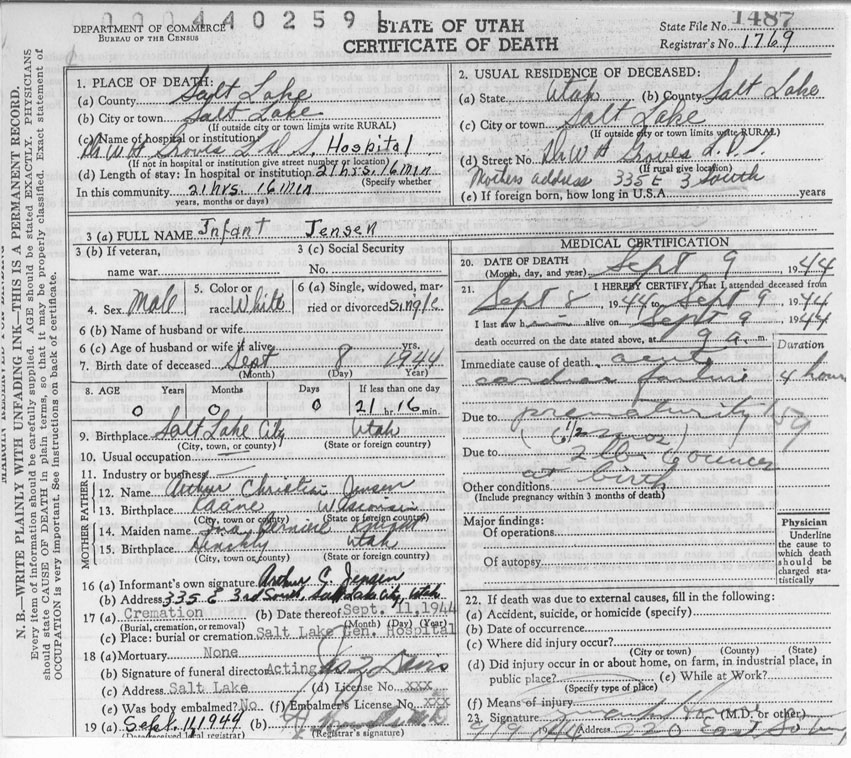 0 4 4 0 2 5 9 1
DEPARTMENT OF COMMERCE
BUREAU OF THE CENSUS
STATE OF UTAH
CERTIFICATE OF DEATH
State File No. 1487
Registrar's No. 1769
N. B.—WRITE PLAINLY WITH UNFADING INK—THIS IS A PERMANENT RECORD.
Every item of information should be carefully supplied. AGE should be stated EXACTLY. PHYSICIANS
should state CAUSE OF DEATH in plain terms, so that it may be properly classified. Exact statement of
OCCUPATION is very important. See instructions on back of certificate.
1. PLACE OF DEATH:
(a) County Salt Lake
(b) City or town Salt Lake
(If outside city or town limits write RURAL)
(c) Name of hospital or institution:
Dr W H Groves L.D.S. Hospital
(If not in hospital or institution give street number or location)
(d) Length of stay: In hospital or institution 21 hrs. 16 min
(Specify whether
In this community 21 hrs. 16 min
years, months or days)
2. USUAL RESIDENCE OF DECEASED:
(a) State Utah (b) County Salt Lake
(c) City or town Salt Lake
(If outside city or town limits write RURAL)
(d) Street No. Dr W H Groves L.D.S.
(If rural give location)
Mothers address 335 E 3 South
(e) If foreign born, how long in U.S.A. years
3 (a) FULL NAME Infant Jensen
3 (b) If veteran, name war
3 (c) Social Security No.
4. Sex Male
5. Color or race White
6 (a) Single, widowed, married or divorced Single
6 (b) Name of husband or wife
6 (c) Age of husband or wife if alive yrs.
7. Birth date of deceased Sept 8 1944
(Month) (Day) (Year)
8. AGE Years Months Days If less than one day
0 0 0 21 hr. 16 min.
9. Birthplace Salt Lake City Utah
(City, town, or county) (State or foreign country)
10. Usual occupation
11. Industry or business
FATHER
12. Name Arthur Christian Jensen
13. Birthplace Wisconsin
(City, town or county) (State or foreign country)
MOTHER
14. Maiden name Bernice Knight
15. Birthplace Utah
(City, town or county) (State or foreign country)
16 (a) Informant's own signature Arthur C. Jensen
(b) Address 335 E 3rd South, Salt Lake City, Utah
17 (a) Cremation (b) Date thereof Sept. 11, 1944
(Burial, cremation, or removal) (Month) (Day) (Year)
(c) Place: burial or cremation Salt Lake Gen. Hospital
18 (a) Mortuary None
(b) Signature of funeral director Acting Davis
(c) Address Salt Lake (d) License No. XXX
(e) Was body embalmed? No (f) Embalmer's License No. XXX
19 (a) Sept. 11, 1944 (b)
(Date received local registrar) (Registrar's signature)
MEDICAL CERTIFICATION
20. DATE OF DEATH Sept 9 1944
(Month, day, and year)
21. I HEREBY CERTIFY, That I attended deceased from
Sept 8 1944 to Sept 9 1944
I last saw h alive on Sept 9 1944
death occurred on the date stated above, at 9 a. m.
Duration
Immediate cause of death acute
cardiac failure 4 hours
Due to prematurity 159
(6 1/2 mos)
Due to 2 lb. 6 ounces
at birth
Other conditions
(Include pregnancy within 3 months of death)
Major findings:
Of operations
Of autopsy
Physician
Underline
the cause to
which death
should be
charged sta-
tistically
22. If death was due to external causes, fill in the following:
(a) Accident, suicide, or homicide (specify)
(b) Date of occurrence
(c) Where did injury occur?
(City or town) (County) (State)
(d) Did injury occur in or about home, on farm, in industrial place, in
public place? (e) While at Work?
(Specify type of place)
(f) Means of injury
23. Signature (M.D. or other)
9/9 1944 Address 220 East So